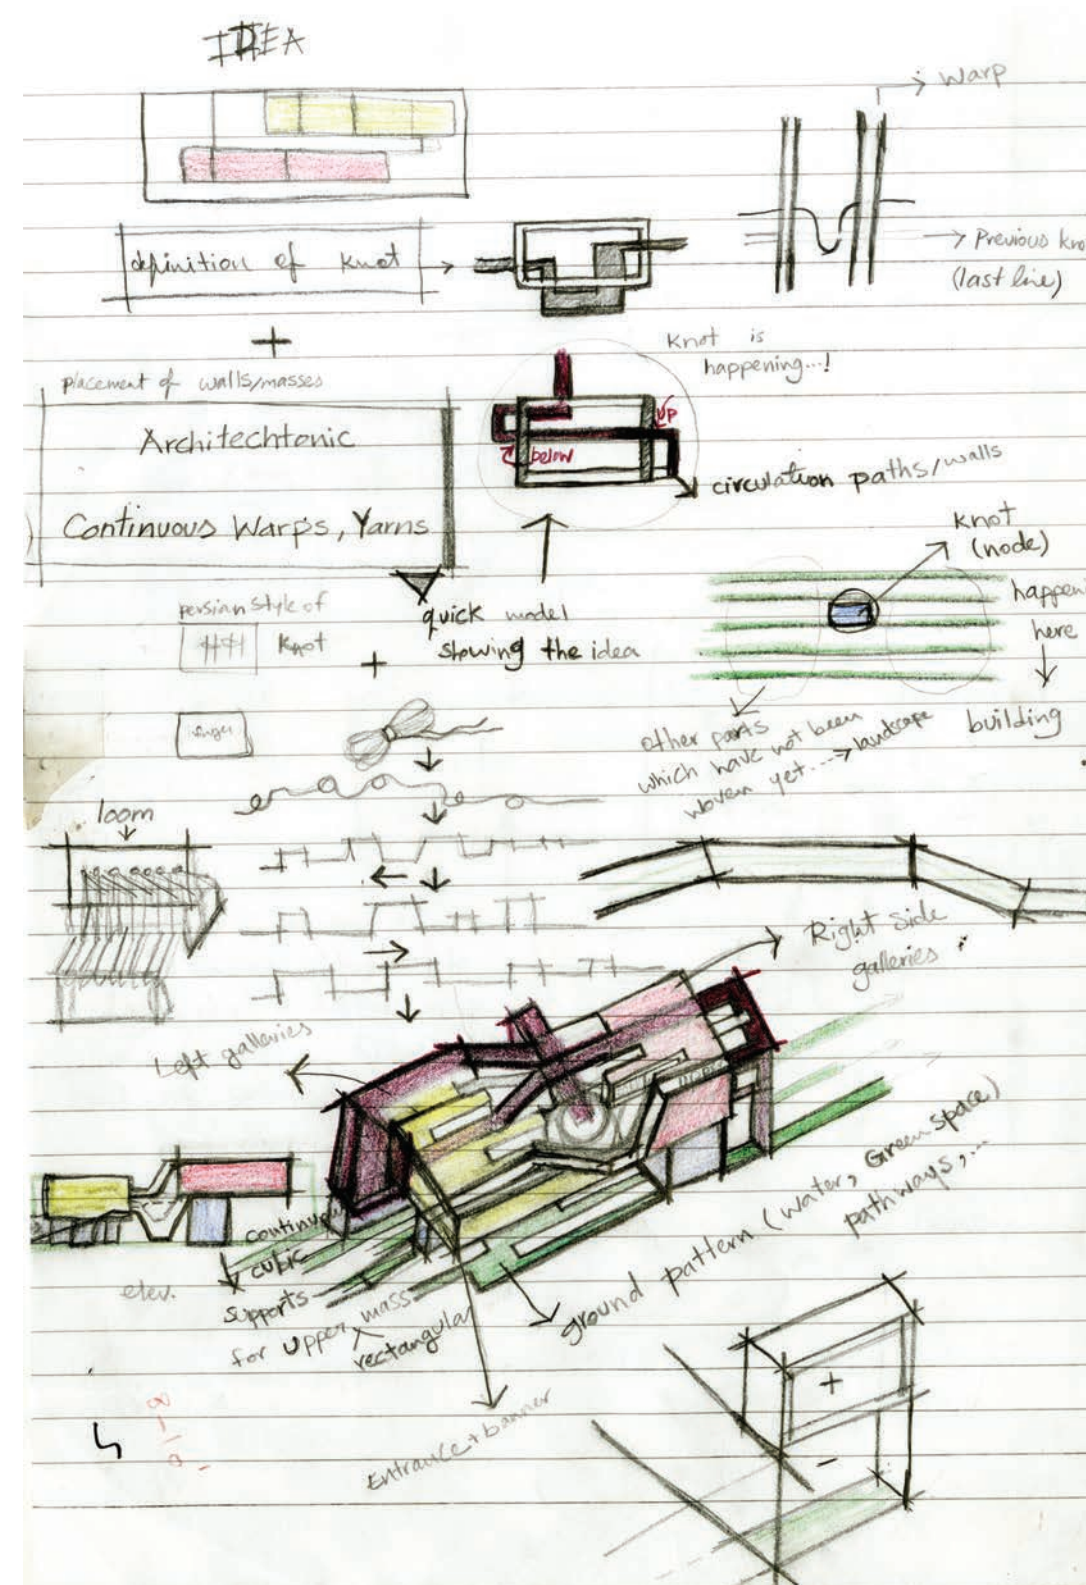 IDEA
Warp
definition of knot
Previous kno
(last line)
knot is
happening...!
placement of walls/masses
Architechtonic
Continuous Warps, Yarns
up
below
circulation paths/walls
knot
(node)
happen
here
building
persian style of
knot
quick model
showing the idea
other parts
which have not been
woven yet... → landscape
loom
Right side
galleries
Left galleries
continuous
cubic
supports
for upper mass
rectangular
elev.
ground pattern (water, Green space)
pathways,...
Entrance + banner
+
-